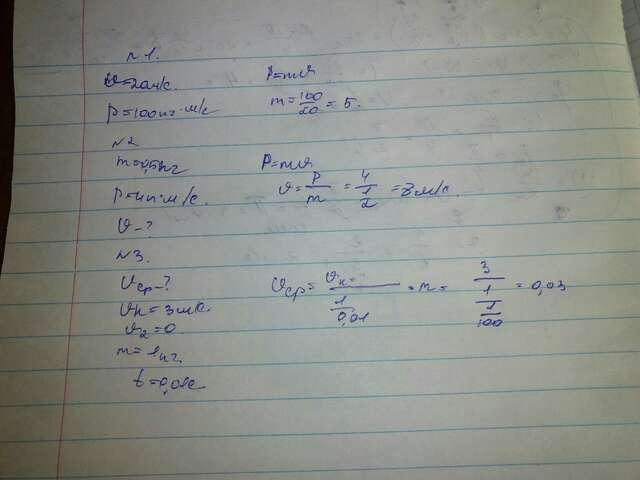 №1.
υ=20м/с.
p=100кг·м/с
P=mυ
m=100/20=5.
№2
m=0,5кг
P=4кг·м/с.
υ-?
P=mυ
υ=P/m=4/1/2=8м/с.
№3.
υср-?
υк=3м/с.
υ2=0
m=1кг.
t=0,01с
υср=υк-/1/0,01=m=3/1/1/100=0,03